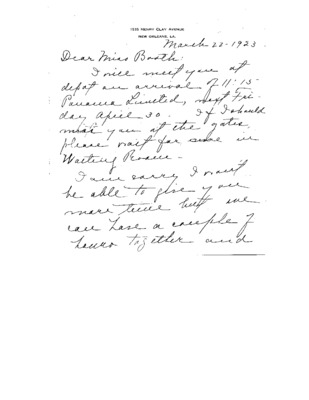 1535 HENRY CLAY AVENUE
NEW ORLEANS, LA.
March 22-1923.
Dear Miss Booth:
I will meet you at
depot on arrival of 11:15
Panama Limited, next Fri-
day, April 30. If I should
miss you at the gates
please wait for me in
Waiting Room -
I am sorry I won't
be able to give you
more time but we
can have a couple of
hours together and